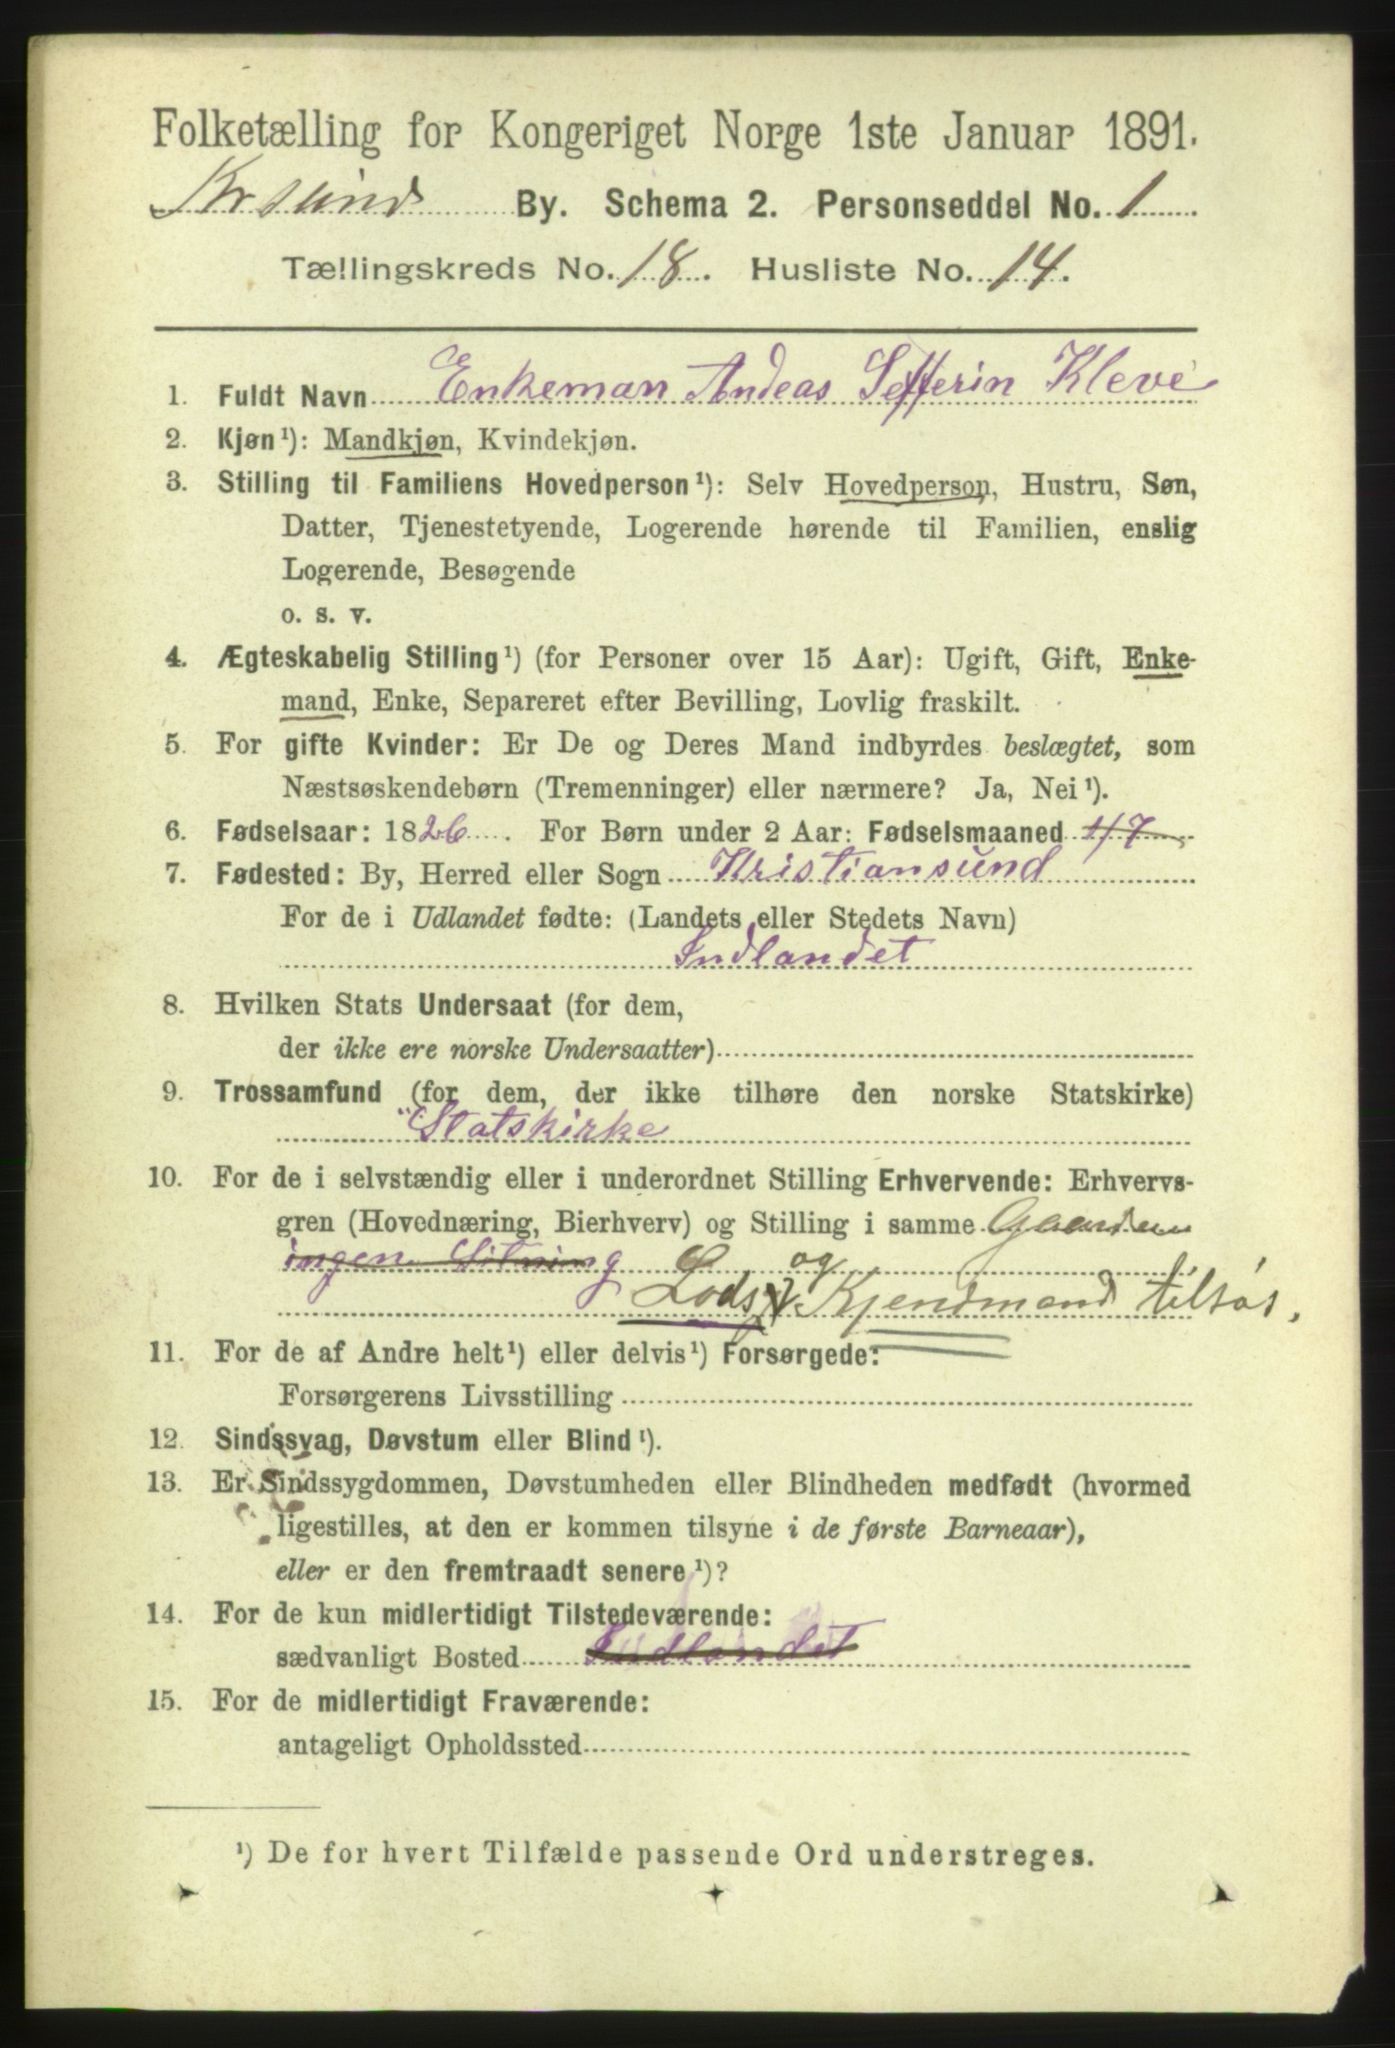 Folketælling for Kongeriget Norge 1ste Januar 1891.
Krsund By. Schema 2. Personseddel No. 1
Tællingskreds No. 18. Husliste No. 14.
1. Fuldt Navn Enkeman Andeas Sefferin Kleve
2. Kjøn¹): Mandkjøn, Kvindekjøn.
3. Stilling til Familiens Hovedperson¹): Selv Hovedperson, Hustru, Søn,
Datter, Tjenestetyende, Logerende hørende til Familien, enslig
Logerende, Besøgende
o. s. v.
4. Ægteskabelig Stilling¹) (for Personer over 15 Aar): Ugift, Gift, Enke-
mand, Enke, Separeret efter Bevilling, Lovlig fraskilt.
5. For gifte Kvinder: Er De og Deres Mand indbyrdes beslægtet, som
Næstsøskendebørn (Tremenninger) eller nærmere? Ja, Nei¹).
6. Fødselsaar: 1826. For Børn under 2 Aar: Fødselsmaaned
7. Fødested: By, Herred eller Sogn Kristiansund
For de i Udlandet fødte: (Landets eller Stedets Navn)
Indlandet
8. Hvilken Stats Undersaat (for dem,
der ikke ere norske Undersaatter)
9. Trossamfund (for dem, der ikke tilhøre den norske Statskirke)
"Statskirke
10. For de i selvstændig eller i underordnet Stilling Erhvervende: Erhvervs-
gren (Hovednæring, Bierhverv) og Stilling i samme
ingen og
Lods Kjendmand tilsøs.
11. For de af Andre helt¹) eller delvis¹) Forsørgede:
Forsørgerens Livsstilling
12. Sindssvag, Døvstum eller Blind¹).
13. Er Sindssygdommen, Døvstumheden eller Blindheden medfødt (hvormed
ligestilles, at den er kommen tilsyne i de første Barneaar),
eller er den fremtraadt senere¹)?
14. For de kun midlertidigt Tilstedeværende:
sædvanligt Bosted Indlandet
15. For de midlertidigt Fraværende:
antageligt Opholdssted
¹) De for hvert Tilfælde passende Ord understreges.